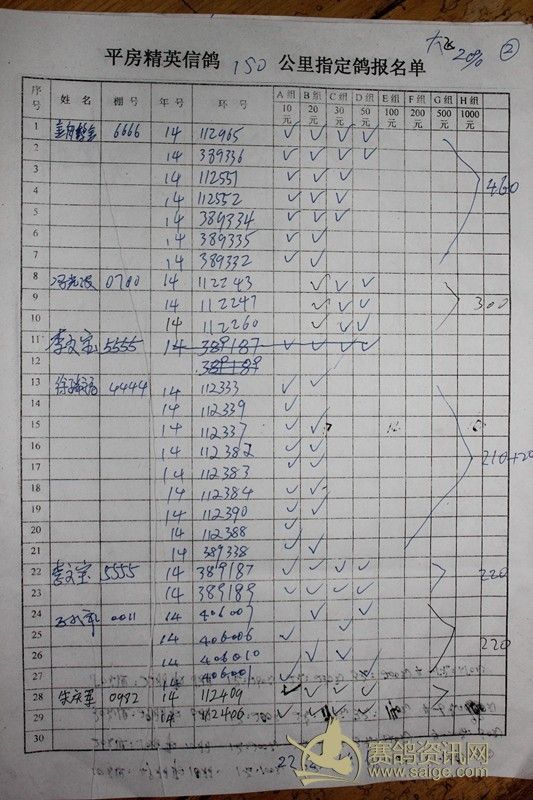 大飞 20% ②
平房精英信鸽 150 公里指定鸽报名单
序号 姓名 棚号 年号 环号 A组10元 B组20元 C组30元 D组50元 E组100元 F组200元 G组500元 H组1000元
1 6666 14 112965 ✓ ✓ ✓ ✓
2 14 389336 ✓ ✓ ✓ ✓
3 14 112551 ✓ ✓ ✓
4 14 112552 ✓ ✓ ✓ 460
5 14 389334 ✓ ✓ ✓
6 14 389335 ✓ ✓
7 14 389332 ✓ ✓
8 0700 14 112243 ✓ ✓ ✓
9 14 112247 ✓ ✓ ✓ 300
10 14 112260 ✓ ✓ ✓
11 李文宝 5555 14 389187 ✓ ✓ ✓ ✓
12 389189
13 4444 14 112333 ✓ ✓
14 14 112339 ✓
15 14 112337 ✓ ✓
16 14 112382 ✓ ✓ 210+20
17 14 112383 ✓ ✓
18 14 112384 ✓ ✓
19 14 112390 ✓ ✓
20 14 112388 ✓
21 14 389338 ✓ ✓
22 李文宝 5555 14 389187 ✓ ✓ ✓ ✓ 220
23 14 389189 ✓ ✓ ✓ ✓
24 0011 14 406007 ✓ ✓
25 14 406006 ✓ ✓ 220
26 14 406010 ✓ ✓
27 14 406001 ✓ ✓
28 宋庆军 0982 14 112409 ✓ ✓ ✓ ✓
29 14 112406 ✓ ✓ ✓ ✓
30
赛鸽资讯网
www.saige.com